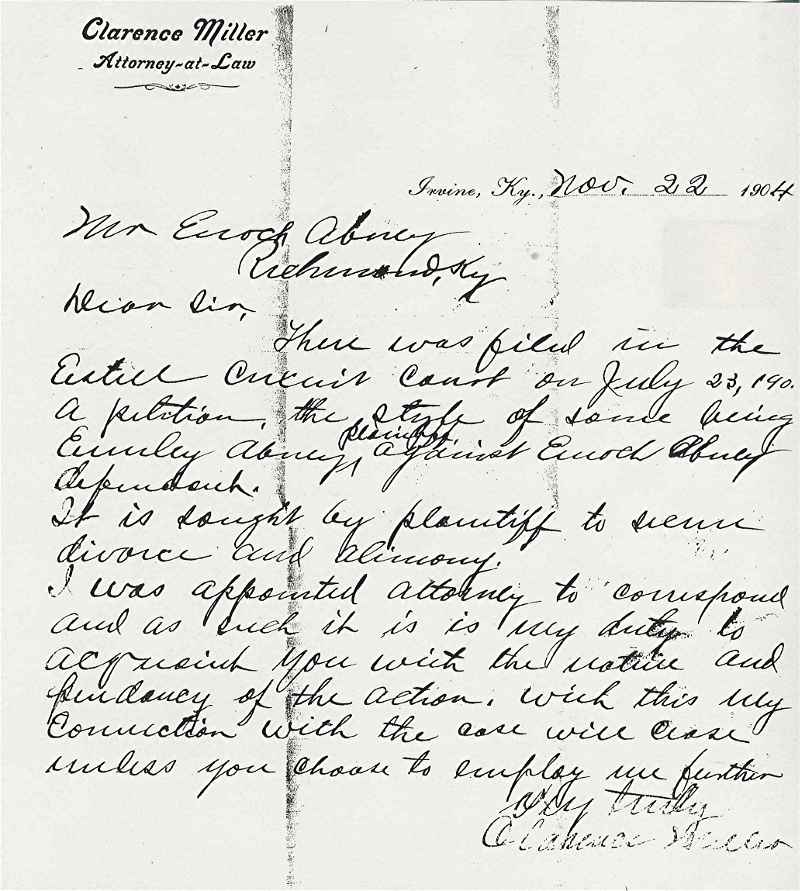 Clarence Miller
Attorney-at-Law
Irvine, Ky., Nov. 22 1904
Mr Enoch Abney
Richmond, Ky
Dear Sir,
There was filed in the
Estill Circuit Court on July 23, 190
A petition, the style of same being
Emmley Abney, plaintiff against Enoch Abney
defendant.
It is sought by plaintiff to secure
divorce and alimony.
I was appointed attorney to correspond
and as such it is is my duty to
acquaint you with the nature and
pendancy of the action. With this my
connection with the case will cease
unless you choose to employ me further
Very truly
Clarence Miller